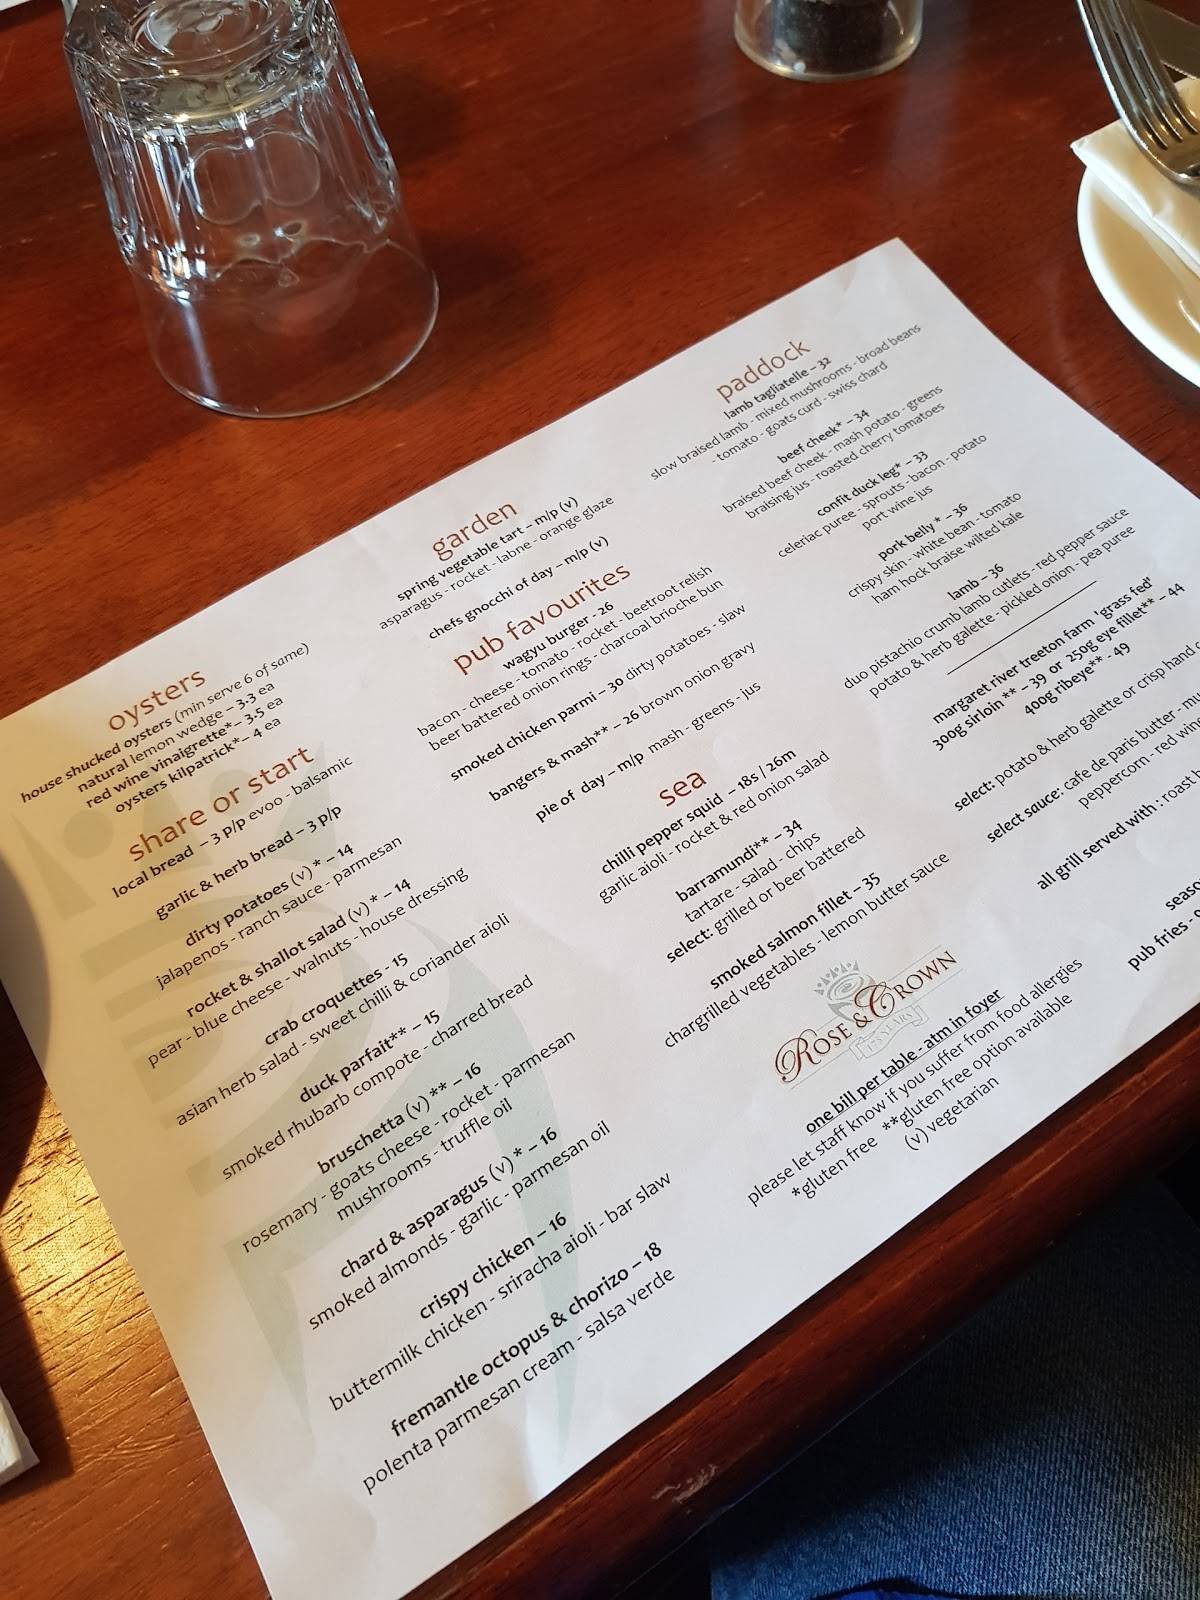 oysters
house shucked oysters (min serve 6 of same)
natural lemon wedge – 3.3 ea
red wine vinaigrette*– 3.5 ea
oysters kilpatrick*– 4 ea
share or start
local bread – 3 p/p evoo - balsamic
garlic & herb bread – 3 p/p
dirty potatoes (v) * – 14
jalapenos - ranch sauce - parmesan
rocket & shallot salad (v) * – 14
pear - blue cheese - walnuts - house dressing
crab croquettes - 15
asian herb salad - sweet chilli & coriander aioli
duck parfait** – 15
smoked rhubarb compote - charred bread
bruschetta (v) ** – 16
rosemary - goats cheese - rocket - parmesan
mushrooms - truffle oil
chard & asparagus (v) * – 16
smoked almonds - garlic - parmesan oil
crispy chicken – 16
buttermilk chicken - sriracha aioli - bar slaw
fremantle octopus & chorizo – 18
polenta parmesan cream - salsa verde
garden
spring vegetable tart – m/p (v)
asparagus - rocket - labne - orange glaze
chefs gnocchi of day – m/p (v)
pub favourites
wagyu burger - 26
bacon - cheese - tomato - rocket - beetroot relish
beer battered onion rings - charcoal brioche bun
smoked chicken parmi – 30 dirty potatoes - slaw
bangers & mash** – 26 brown onion gravy
pie of day – m/p mash - greens - jus
sea
chilli pepper squid – 18s / 26m
garlic aioli - rocket & red onion salad
barramundi** – 34
tartare - salad - chips
select: grilled or beer battered
smoked salmon fillet – 35
chargrilled vegetables - lemon butter sauce
ROSE & CROWN
175 YEARS
one bill per table - atm in foyer
please let staff know if you suffer from food allergies
*gluten free **gluten free option available
(v) vegetarian
paddock
lamb tagliatelle – 32
slow braised lamb - mixed mushrooms - broad beans
- tomato - goats curd - swiss chard
beef cheek* – 34
braised beef cheek - mash potato - greens
braising jus - roasted cherry tomatoes
confit duck leg* – 33
celeriac puree - sprouts - bacon - potato
port wine jus
pork belly * – 36
crispy skin - white bean - tomato
ham hock braise wilted kale
lamb – 36
duo pistachio crumb lamb cutlets - red pepper sauce
potato & herb galette - pickled onion - pea puree
margaret river treeton farm 'grass fed'
300g sirloin ** – 39 or 250g eye fillet** – 44
400g ribeye** - 49
select: potato & herb galette or crisp hand
select sauce: cafe de paris butter -
peppercorn - red
all grill served with : roast
pub fries -